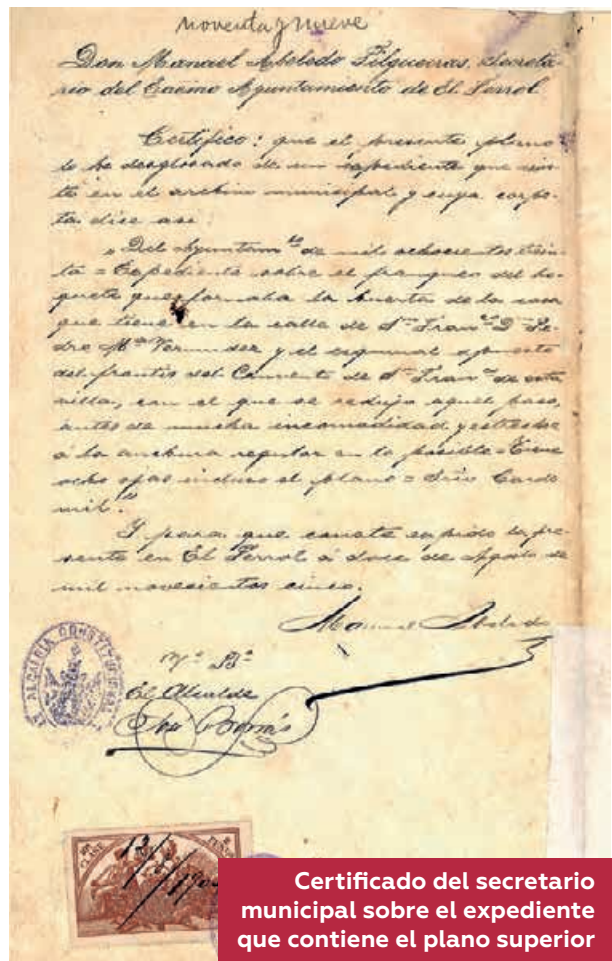 noventa y nueve
Don Manuel Abeledo Filgueiras, Secreta-
rio del Excmo Ayuntamiento de El Ferrol
Certifico: que el presente plano
lo he desglosado de un expediente que exis-
te en el archivo municipal y cuya carpe-
ta dice asi:
"Del Ayuntamto de mil ochocientos trein-
ta = Expediente sobre el franqueo del bo-
quete que formaba la huerta de la casa
que tiene en la calle de Sn Franco Dn Pe-
dro Ma y el esquinal opuesto
del frontis del Convento de Sn Franco de esta
villa, con el que se redujo aquel paso,
antes de mucha incomodidad y estrechez
á la anchura regular en lo posible = Tiene
ocho ojas incluso el plano =
"
Y para que conste expido la pre-
sente en El Ferrol á doce de Agosto de
mil novecientos cinco.
Manuel Abeledo
Vº Bº
El Alcalde
ALCALDIA CONSTITUCIONAL
12/8/190
Certificado del secretario
municipal sobre el expediente
que contiene el plano superior